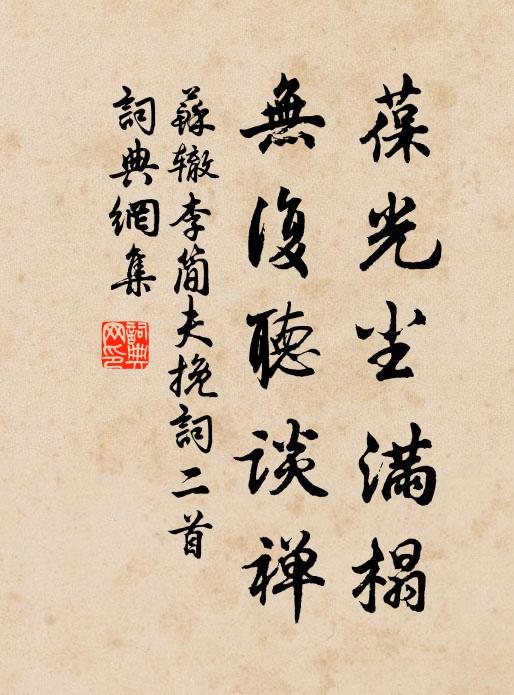 葆光尘满榻
無復聽谈禅
蘇辙李简夫挽詞二首
詞典網集
詞典网印